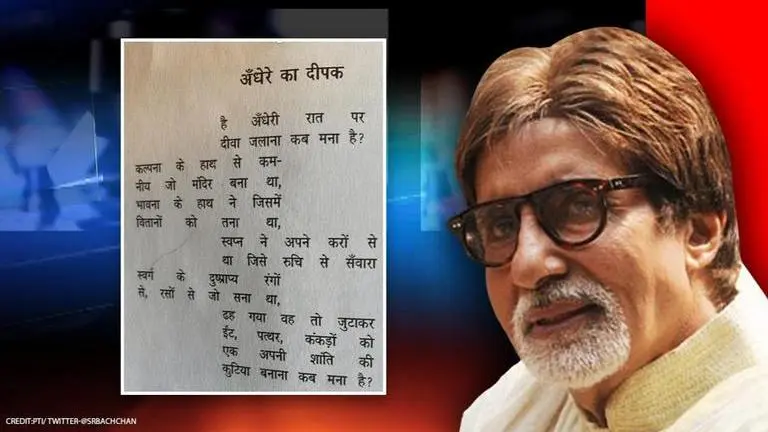 अँधेरे का दीपक
है अँधेरी रात पर
दीवा जलाना कब मना है?
कल्पना के हाथ से कम-
नीय जो मंदिर बना था,
भावना के हाथ ने जिसमें
वितानों को तना था,
स्वप्न ने अपने करों से
था जिसे रुचि से सँवारा
स्वर्ग के दुष्प्राप्य रंगों
से, रसों से जो सना था,
ढह गया वह तो जुटाकर
ईंट, पत्थर, कंकड़ों को
एक अपनी शांति की
कुटिया बनाना कब मना है?
CREDIT:PTI/ TWITTER-@SRBACHCHAN